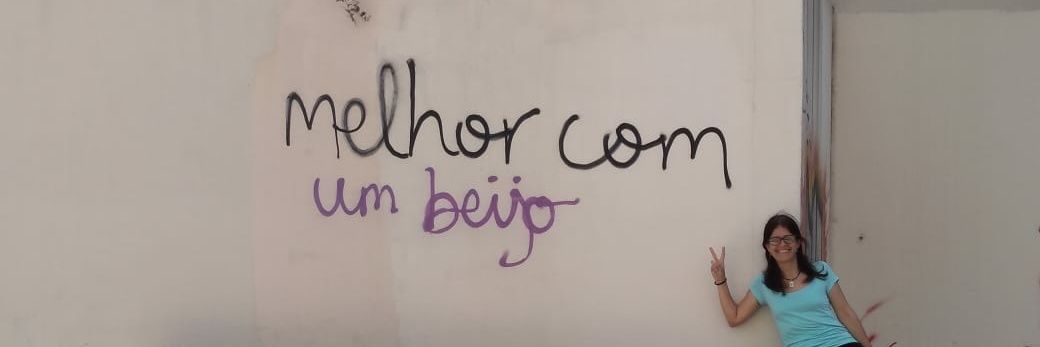 melhor com
um beijo